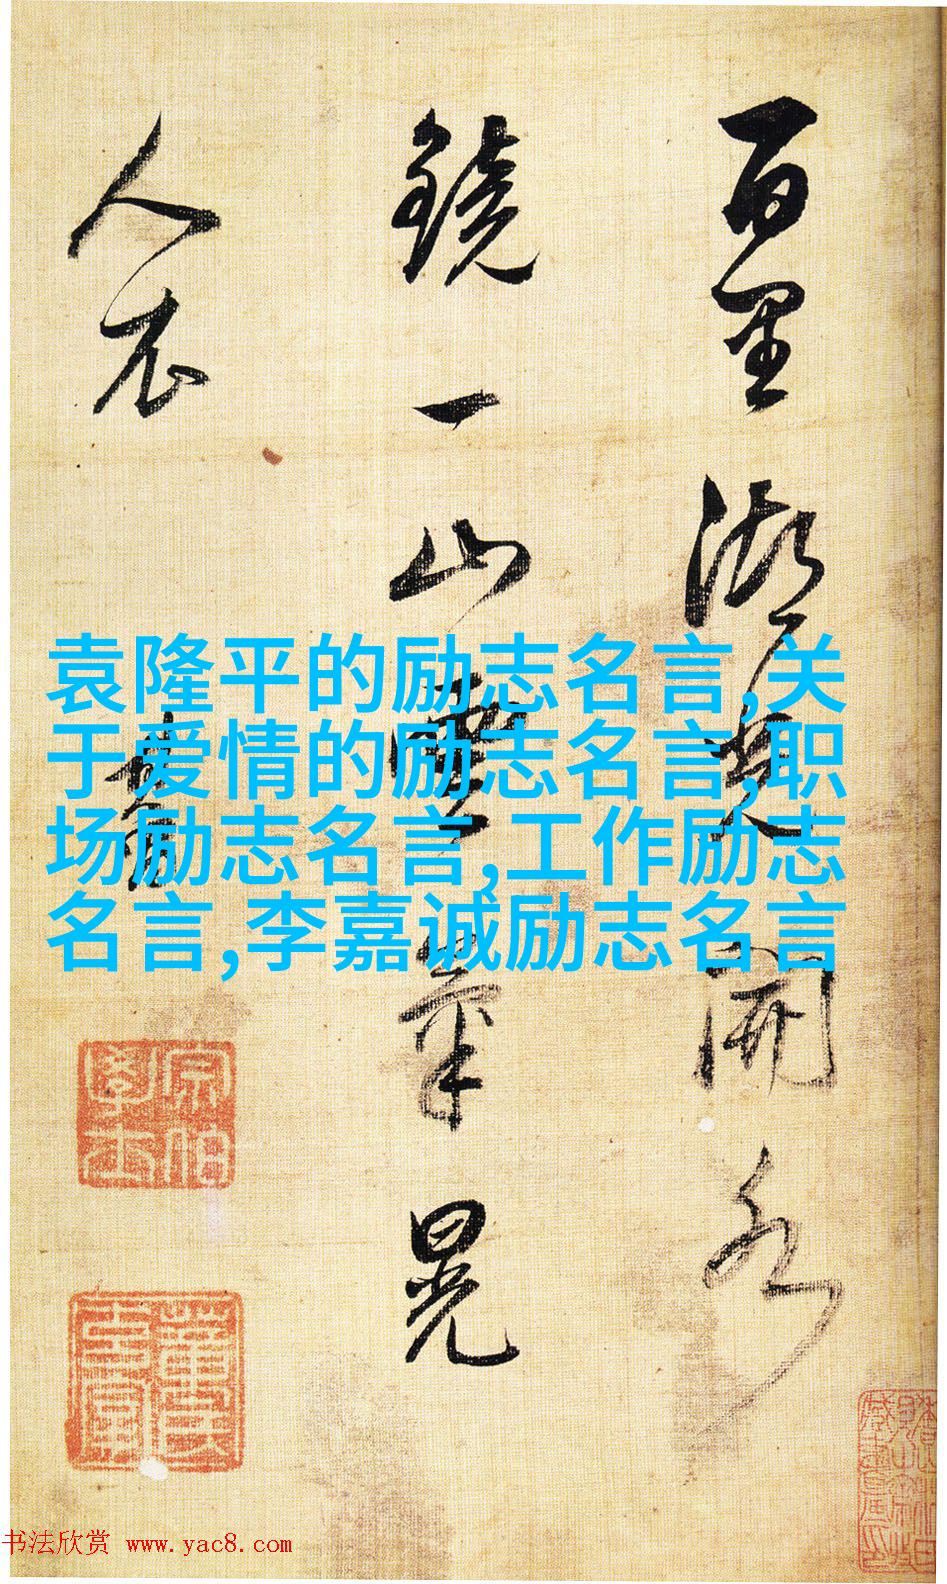 百里湖光開水
鏡一山雲氣晃
人衣
袁隆平的励志名言,关
于爱情的励志名言,职
场励志名言,工作励志
名言,李嘉诚励志名言
宗伯
學士
书法欣赏 www.yac8.com